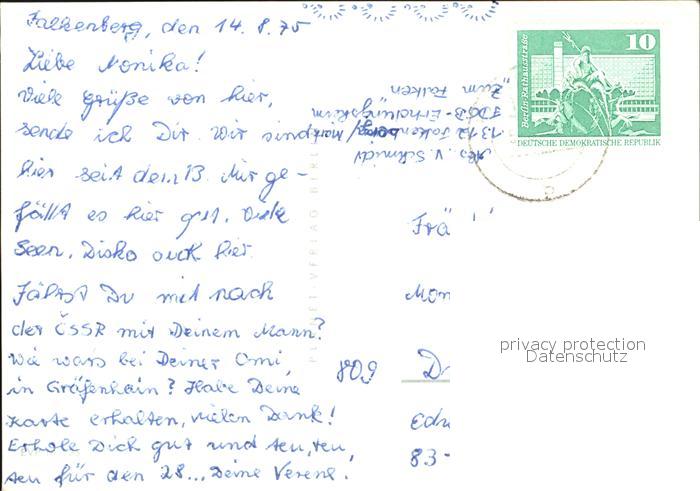 Falkenberg, den 14. 8. 75
Liebe Monika!
Viele Grüße von hier,
sende ich Dir. Wir sind
hier seit dem 13. Mir ge-
fällt es hier gut. Viele
Seen, Disko auch hier.
Fährst Du mit nach
der ČSSR mit Deinem Mann?
Wie wars bei Deiner Omi,
in Gräfenhain? Habe Deine
Karte erhalten, vielen Dank!
Erhole Dich gut und
für den 28... Deine Verene.
Abs. V. Schmidt
1312 Falkenberg/Mark
FDGB-Erholungsheim
"Zum Falken"
PLANET-VERLAG BERLIN
Berlin-Rathausstraße
10
DEUTSCHE DEMOKRATISCHE REPUBLIK
Frä
Mon
809 D
83-
privacy protection
Datenschutz